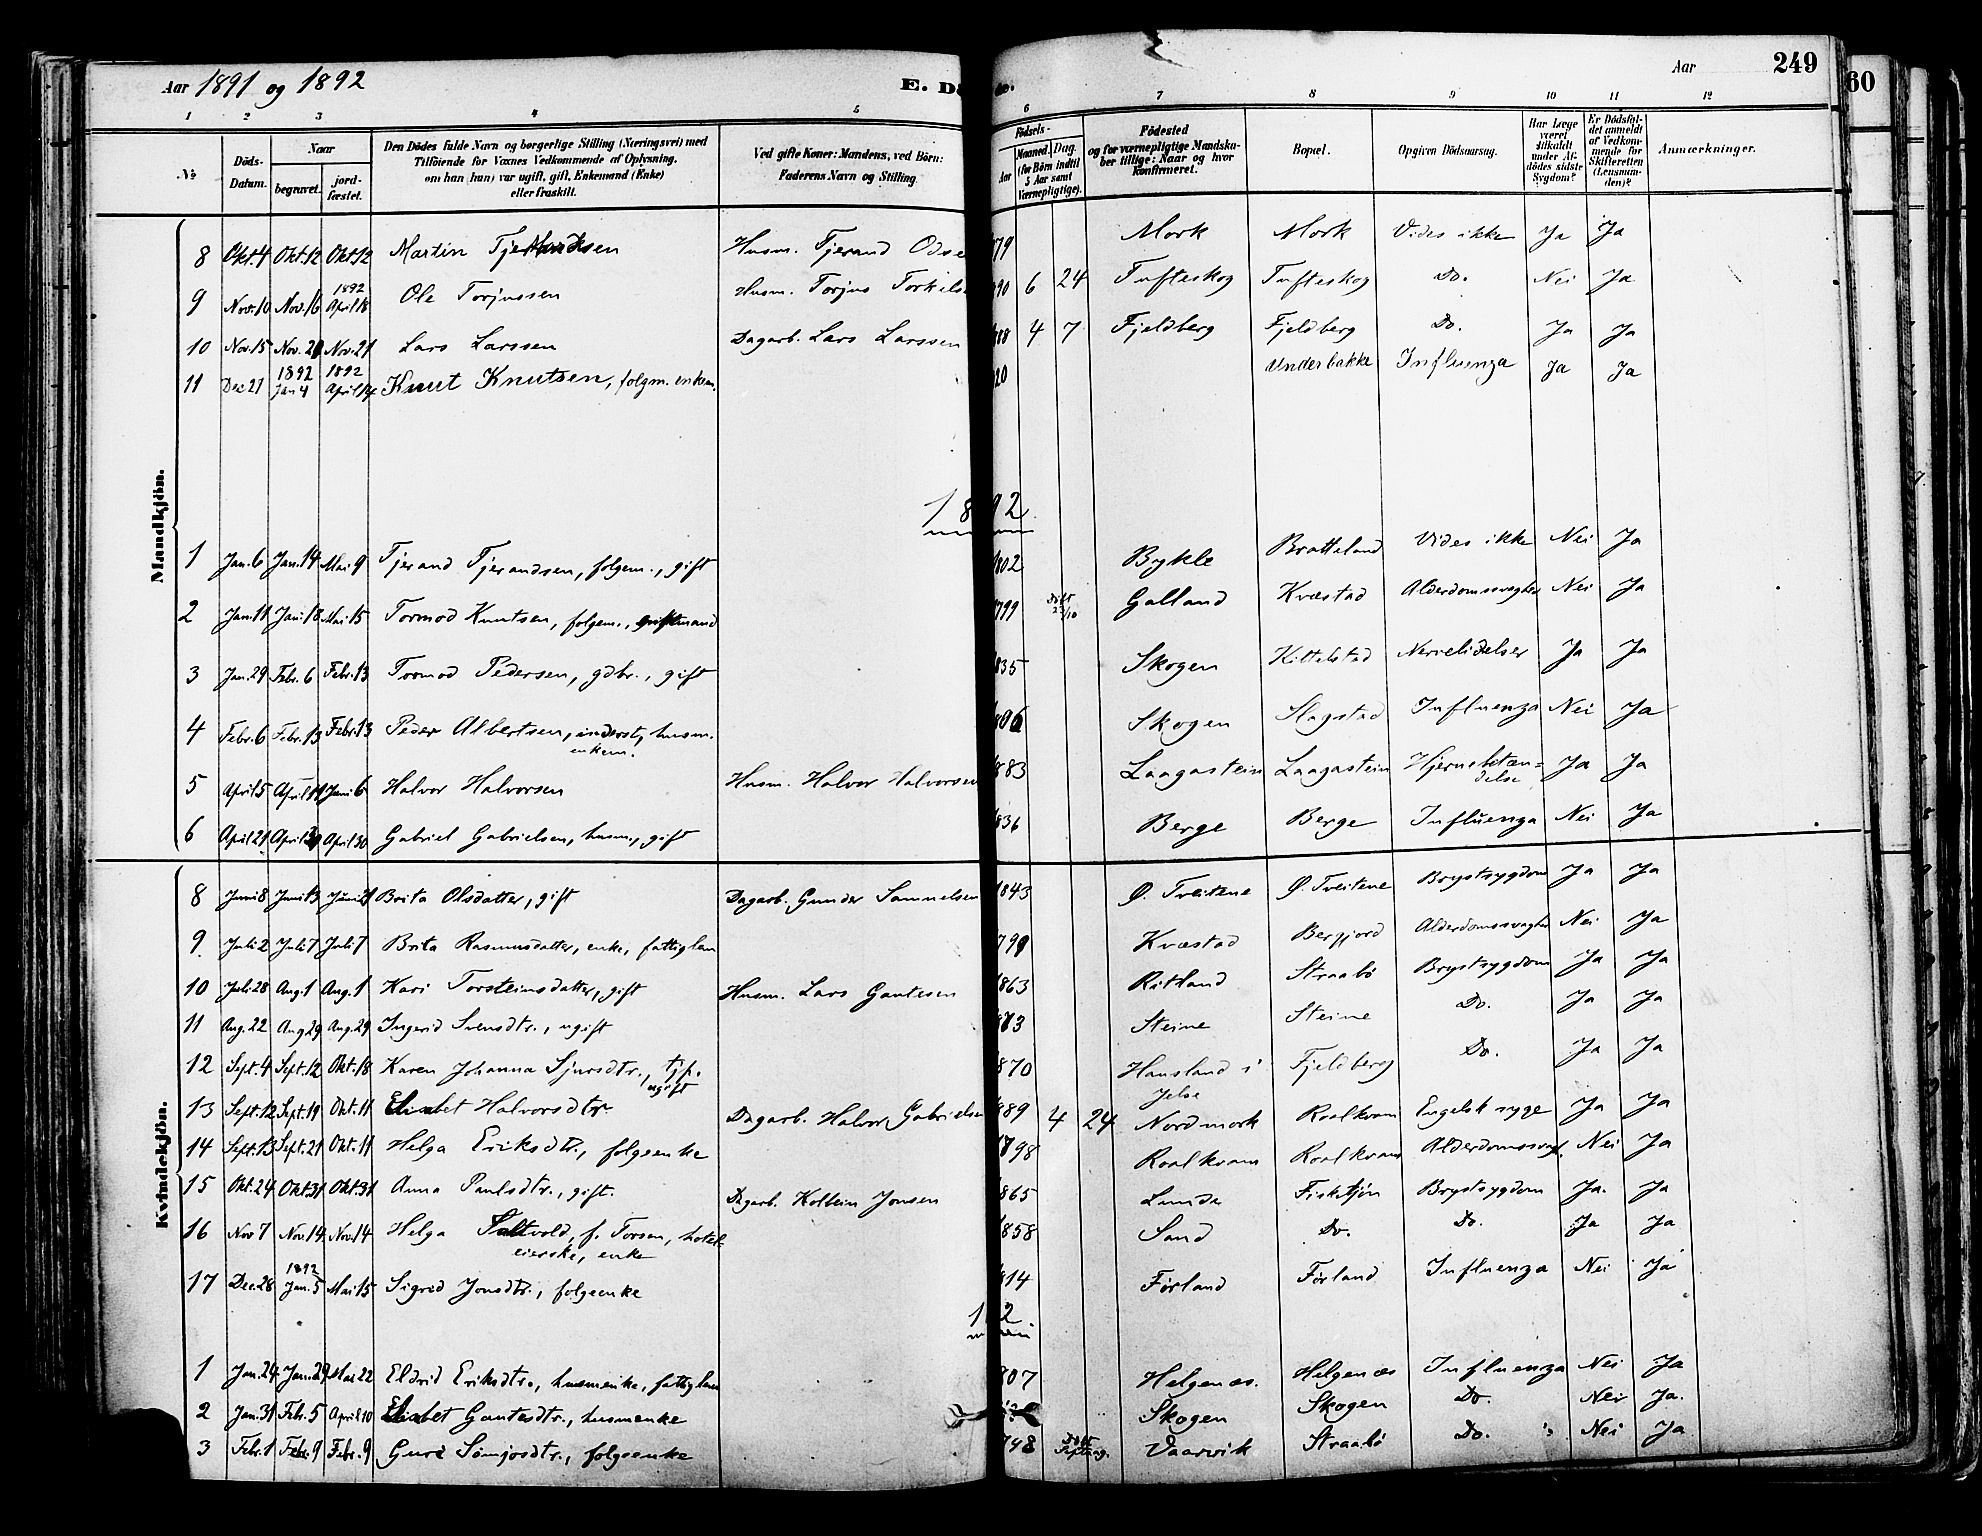 Aar 1891 og 1892
E. Dø
de.
Aar
249
60
1 2 3 4 5 6 7 8 9 10 11 12
№
Döds-Datum.
Naar
begravet.
jord-fæstet.
Den Dödes fulde Navn og borgerlige Stilling (Næringsvei) med Tilföiende for Voxnes Vedkommende af Oplysning, om han (hun) var ugift, gift, Enkemand (Enke) eller fraskilt.
Ved gifte Koner: Mandens, ved Börn: Faderens Navn og Stilling.
Födsels-
Aar
Maaned. Dag.
(for Börn indtil 5 Aar samt Værnepligtige).
Födested og for værnepligtige Mandskaber tillige: Naar og hvor konfirmeret.
Bopæl.
Opgiven Dödsaarsag.
Har Læge været tilkaldt under Afdödes sidste Sygdom?
Er Dödsfaldet anmeldt af Vedkommende for Skifteretten (Lensmanden)?
Anmærkninger.
Mandkjön.
8 Okt.4 Okt.12 Okt.12 Martin Tjerandsen Husm. Tjerand Odse 79 Mork Mork Vides ikke Ja Ja
9 Nov.10 Nov.16 1892 April 18 Ole Torjussen Husm. Torjus Torkils 90 6 24 Tufteskog Tufteskog Do. Nei Ja
10 Nov.15 Nov.21 Nov.21 Lars Larssen Dagarb. Lars Larssen 88 4 7 Fjeldberg Fjeldberg Do. Ja Ja
11 Dec.21 1892 Jan 4 1892 April 14 Knut Knutsen, folgm. enkem. 20 Underbakke Influenza Ja Ja
1892
1 Jan.6 Jan.14 Mai 9 Tjerand Tjerandsen, folgem., gift 802 Bykle Bratteland Vides ikke Nei Ja
2 Jan.11 Jan.18 Mai 15 Tormod Knutsen, folgem., 799 Døbt 23/10 Galland Kvæstad Alderdomssvaghed Nei Ja
3 Jan.29 Febr.6 Febr.13 Tormod Pedersen, gdbr., gift 835 Skogen Kittelstad Nervelidelser Ja Ja
4 Febr.6 Febr.13 Febr.13 Peder Albertsen, inderst, husm. enkem. 806 Skogen Slagstad Influenza Nei Ja
5 April 5 April Juni 6 Halvor Halvorsen Husm. Halvor Halvorsen 883 Laagastein Laagastein Hjernebetæn=delse Ja Ja
6 April 21 April 30 April 30 Gabriel Gabrielsen, husm., gift 836 Berge Berge Influenza Nei Ja
Kvindekjön.
8 Juni 8 Juni 13 Juni 21 Brita Olsdatter, gift Dagarb. Gunder Samuelsen 1843 Ø. Tveitene Ø. Tveitene Brystsygdom Ja Ja
9 Juli 2 Juli 7 Juli 7 Brita Rasmusdatter, enke, fattiglem 799 Kvæstad Bergjord Alderdomssvaghed Nei Ja
10 Juli 28 Aug.1 Aug.1 Kari Torsteinsdatter, gift Husm. Lars Gautesen 863 Ritland Straabø Brystsygdom Ja Ja
11 Aug.22 Aug.29 Aug.29 Ingerid Svensdtr., ugift 873 Steine Steine Do. Ja Ja
12 Sept.4 Sept.12 Okt.18 Karen Johanna Sjursdtr., tjp. ugift 870 Hausland i Jelse Fjeldberg Do. Ja Ja
13 Sept.12 Sept.19 Okt.11 Elisabet Halvorsdtr Dagarb. Halvor Gabrielsen 889 4 24 Nordmork Roalkvam Engelsk syge Ja Ja
14 Sept.13 Sept.21 Okt.11 Helga Eriksdtr., folgeenke 1798 Roalkvam Roalkvam Alderdomssvagh. Nei Ja
15 Okt.24 Okt.31 Okt.31 Anna Paulsdtr., gift. Dagarb. Kolbein Jonsen 865 Lunde Fisketjøn Brystsygdom Ja. Ja
16 Nov 7 Nov.14 Nov.14 Helga Saltvold, f. Torsen, hotel-eierske, enke 858 Sand Do. Do. Ja Ja
17 Dec.28 1892 Jan.5 Mai 15 Sigrid Jonsdtr., folgeenke 814 Førland Førland Influenza Nei Ja
1 2
1 Jan.24 Jan.29 Mai 22 Eldrid Eriksdtr., husmenke, fattiglem 807 Helgenæs. Helgenæs Influenza Nei Ja
2 Jan.31 Febr.5 April 10 Elisabet Gautesdtr., husmenke Skogen Skogen Do. Nei Ja.
3 Febr.1 Febr.9 Febr.9 Guri Simonsdtr., folgeenke 798 Døbt Vaarvik Straabø Do. Nei Ja